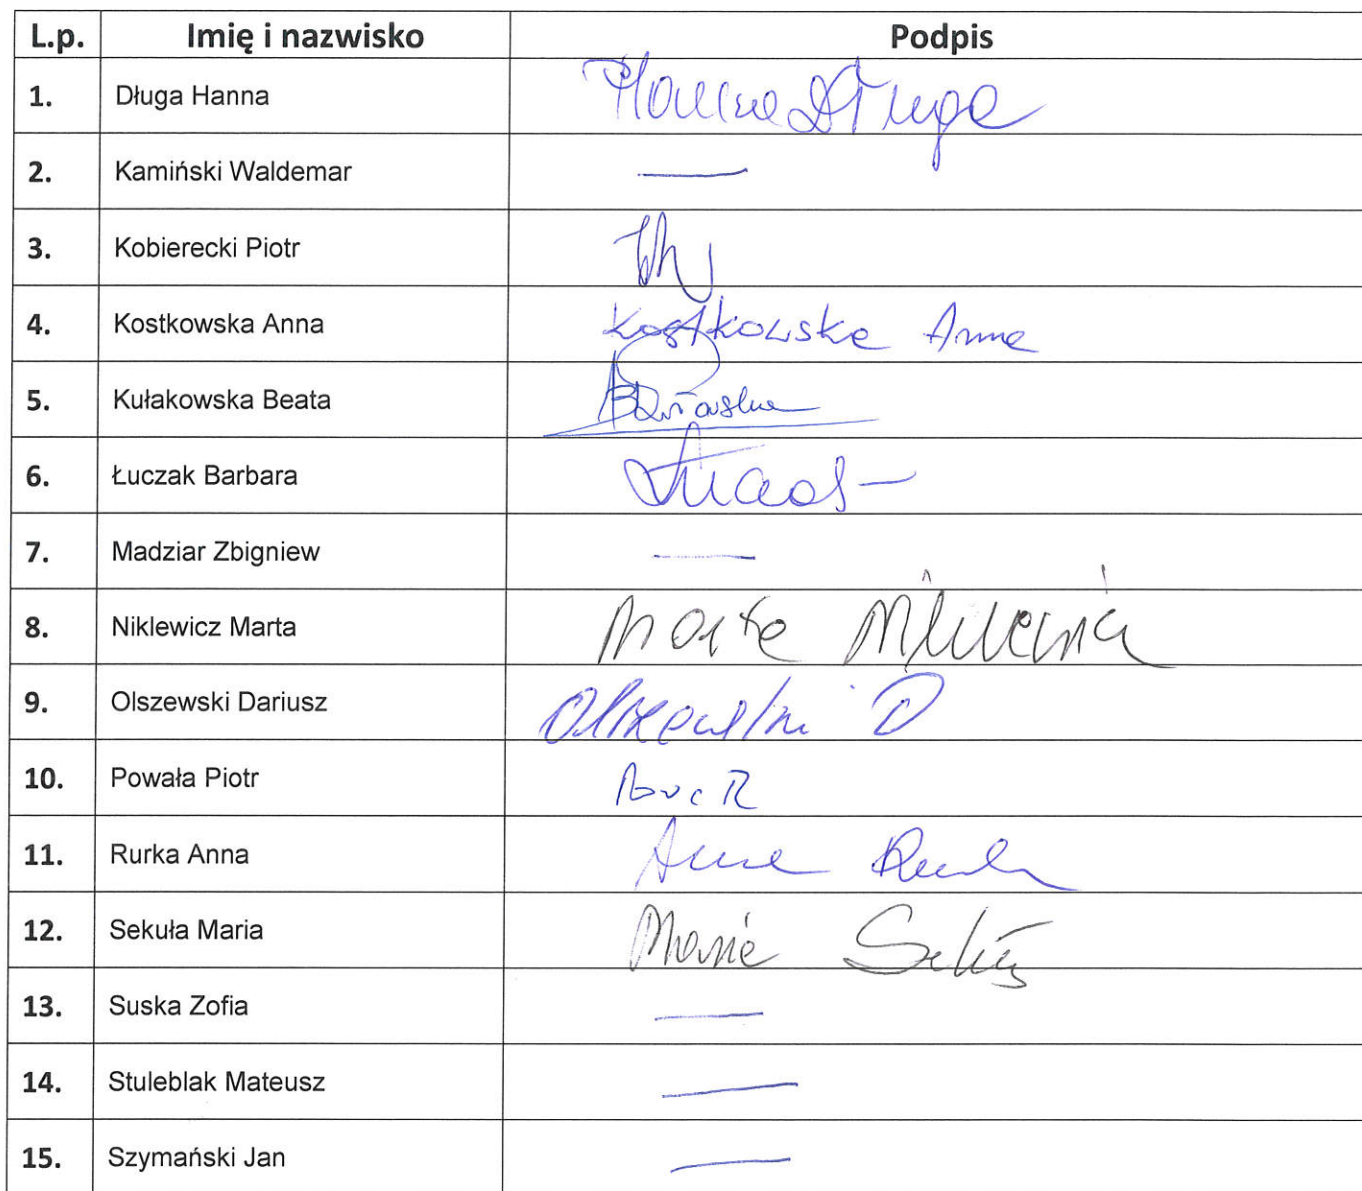 L.p. Imię i nazwisko Podpis
1. Długa Hanna Hanna Długa
2. Kamiński Waldemar —
3. Kobierecki Piotr
4. Kostkowska Anna Kostkowska Anna
5. Kułakowska Beata
6. Łuczak Barbara
7. Madziar Zbigniew —
8. Niklewicz Marta Marta
9. Olszewski Dariusz Olszewski D
10. Powała Piotr
11. Rurka Anna Anna
12. Sekuła Maria Maria Sekuła
13. Suska Zofia —
14. Stuleblak Mateusz —
15. Szymański Jan —